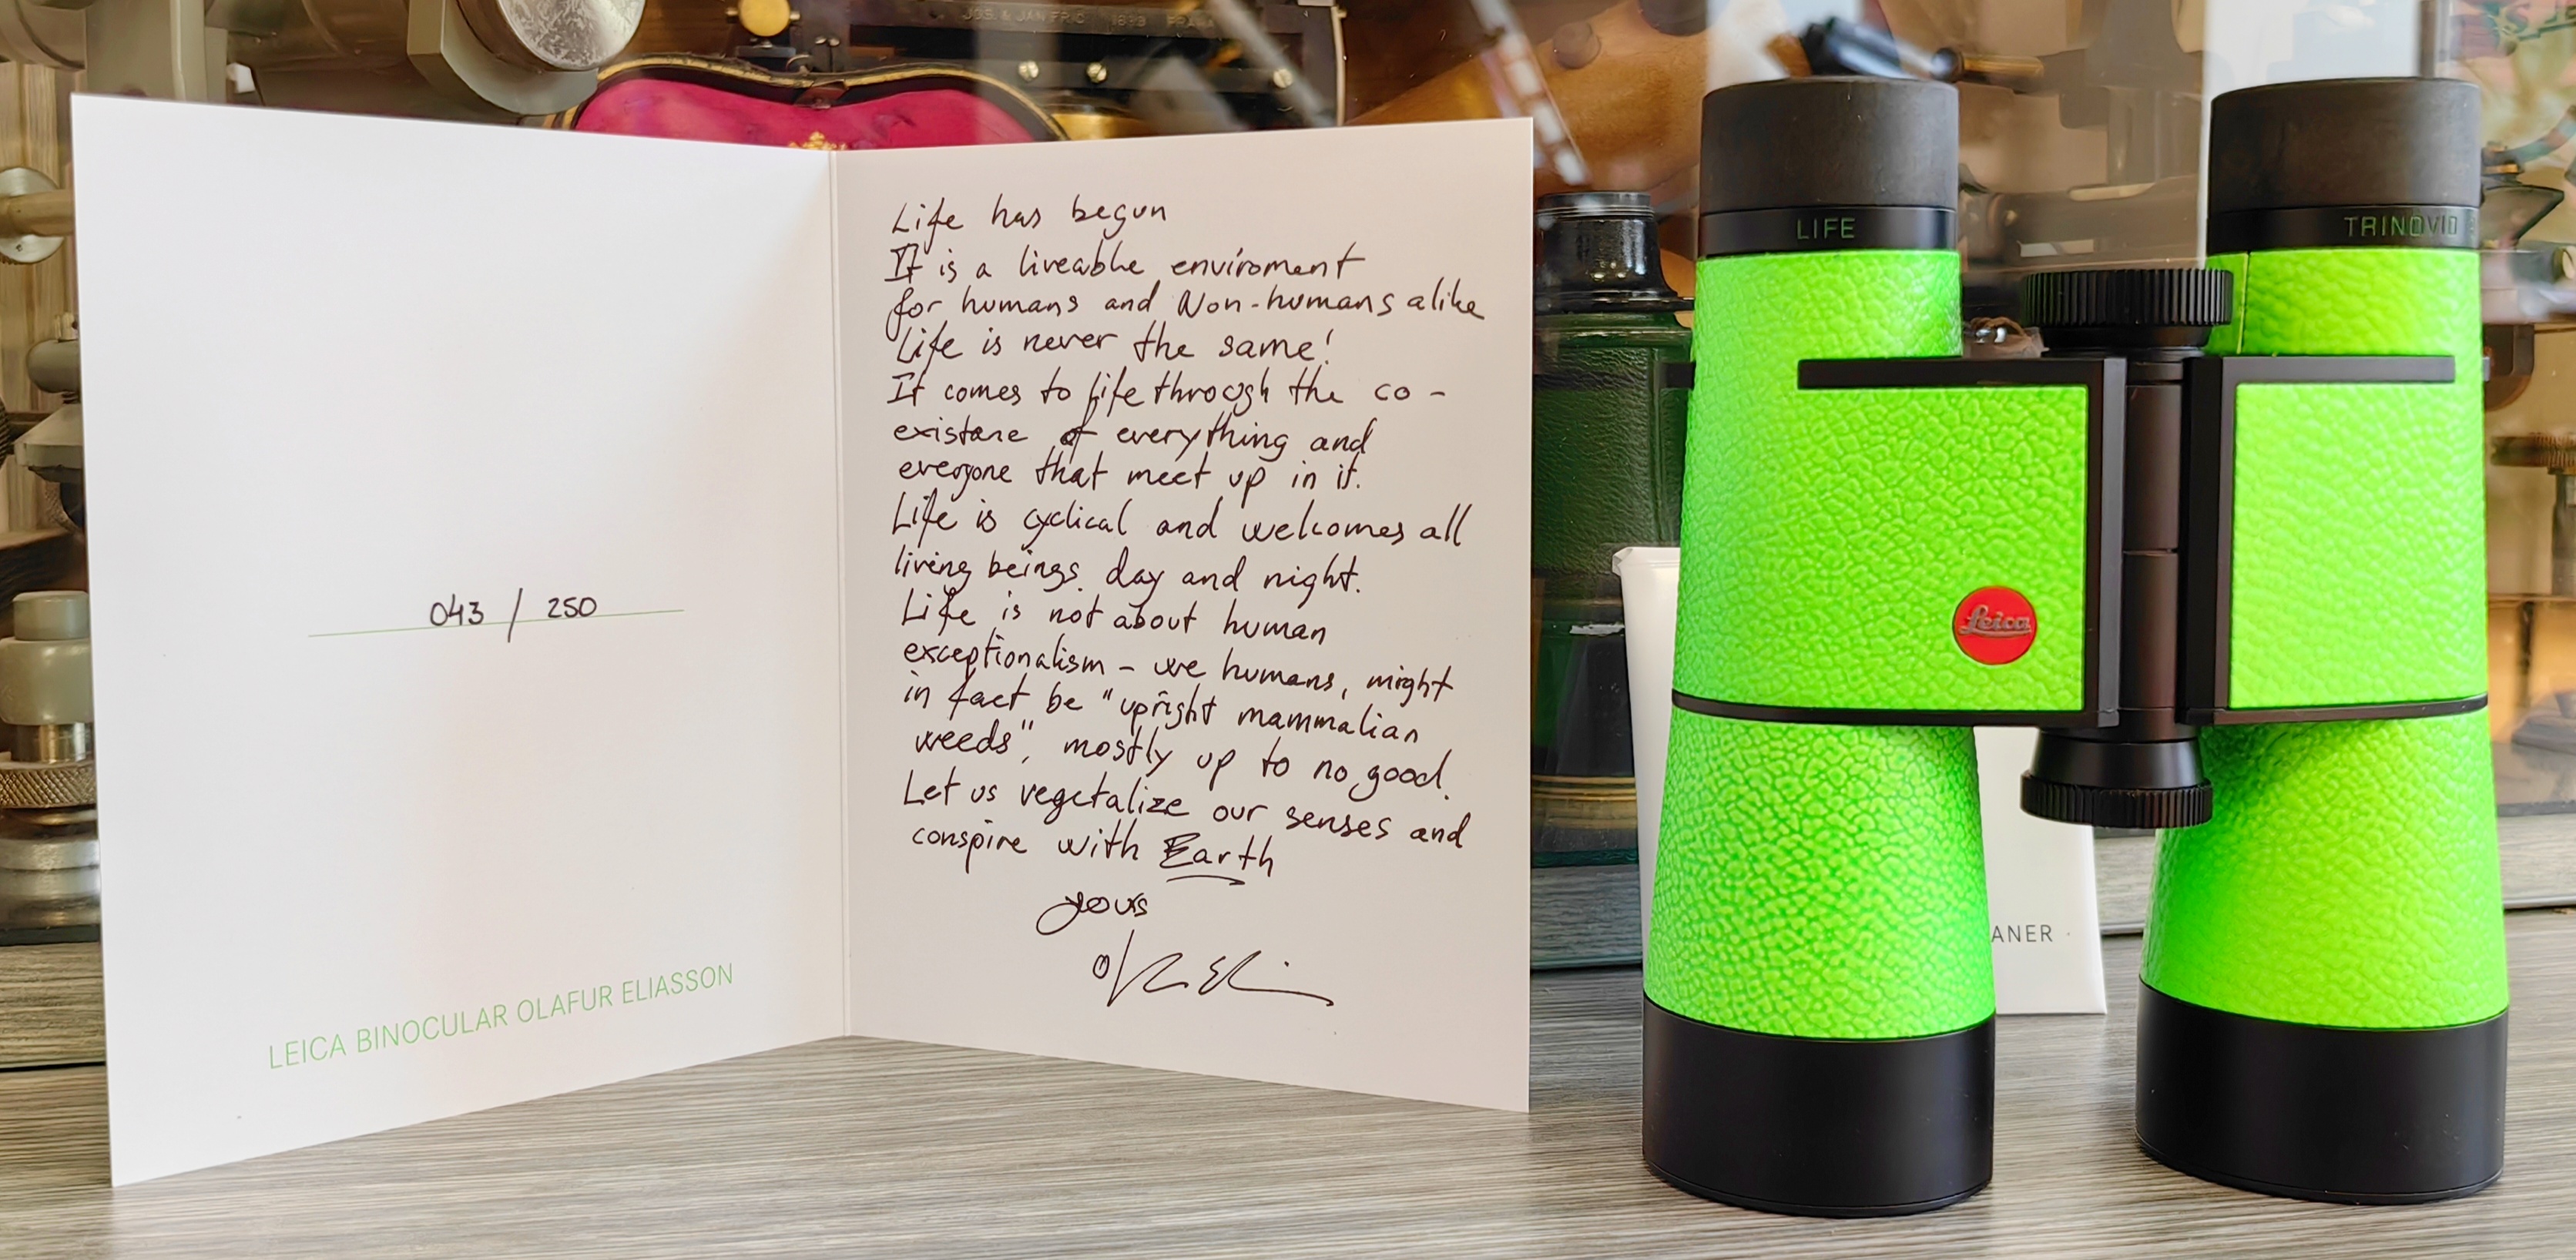 JOS. & JAN FRIČ 1899 PRAHA
043 / 250
LEICA BINOCULAR OLAFUR ELIASSON
Life has begun
It is a liveable enviroment
for humans and Non-humans alike
Life is never the same!
It comes to life through the co-
existane of everything and
everyone that meet up in it.
Life is cyclical and welcomes all
living beings day and night.
Life is not about human
exceptionalism - we humans, might
in fact be "upright mammalian
weeds", mostly up to no good.
Let us vegetalize our senses and
conspire with Earth
yours
LIFE
TRINOVID
Leica
ANER